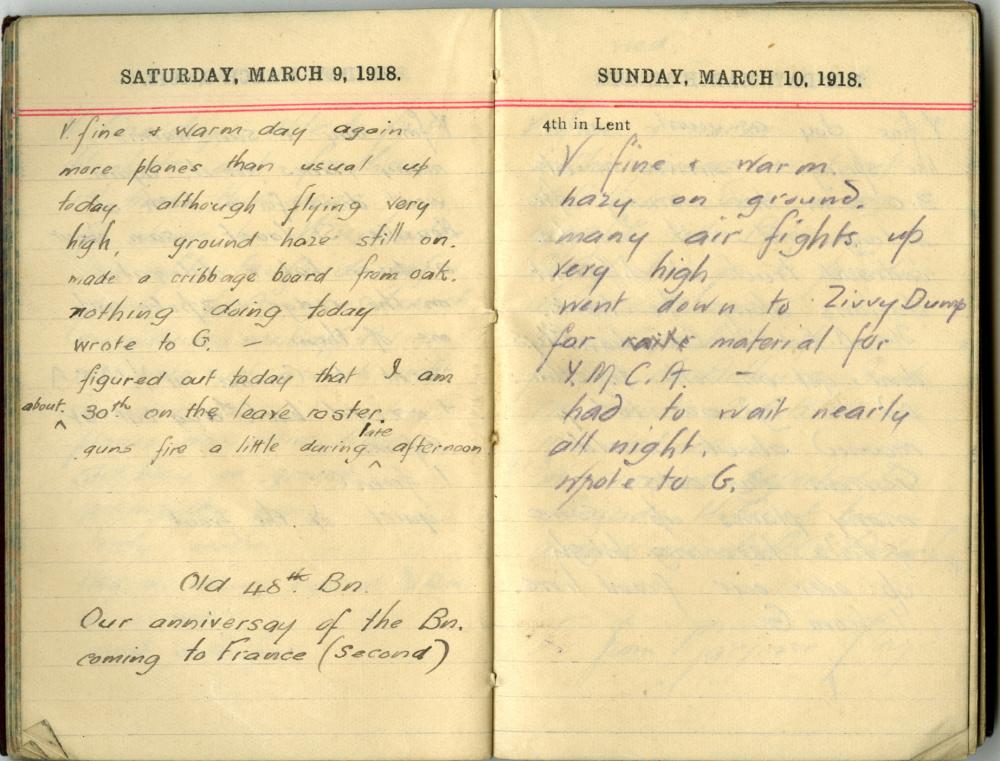 SATURDAY, MARCH 9, 1918.
V. fine & warm day again
more planes than usual up
today although flying very
high, ground haze still on.
made a cribbage board from oak.
nothing doing today
wrote to G. —
figured out today that I am
about 30th on the leave roster.
guns fire a little during late afternoon
Old 48th. Bn.
Our anniversay of the Bn.
coming to France (second)
SUNDAY, MARCH 10, 1918.
4th in Lent
V fine & warm
hazy on ground.
many air fights up
very high
went down to Zivvy Dump
for material for
Y.M.C.A. —
had to wait nearly
all night.
wrote to G.